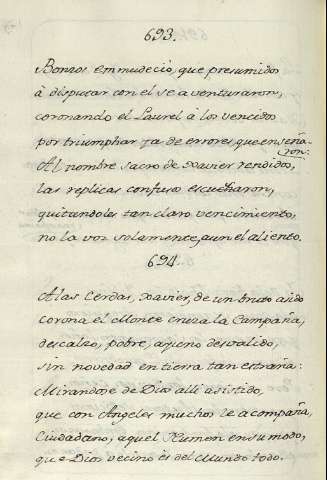 693.
Bonzos enmudeciò, que presumidos
à disputar con el se aventuraron,
coronando el Laurel à los vencidos
por triumphar ya de errores, que enseña-
ron:
Al nombre sacro de Xavier rendidos,
las replicas confusos escucharon,
quitandoles tan claro vencimiento,
no la voz solamente, aun el aliento.
694.
A las Cerdas, Xavier, de un bruto asido
corona el Monte cruza la Campaña,
descalzo, pobre, ageno desvalido,
sin novedad en tierra tan estraña:
Mirandose de Dios alli asistido,
que con Angeles muchos le acompaña,
Ciudadano, aquel Numen en su modo,
que Dios vecino ès del Mundo todo.